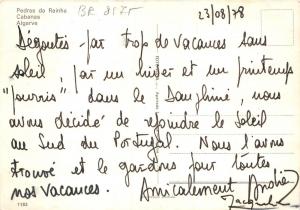 Pedras da Rainha
Cabanas
Algarve
BR 8575
23/08/78
Dégoutés par trop de vacances sans
soleil, par un hiver et un printemps
"pourris" dans le Dauphiné, nous
avons décidé de rejoindre le soleil
au Sud du Portugal. Nous l'avons
trouvé et le gardons pour toutes
nos vacances. Amicalement Andrée
Jacques